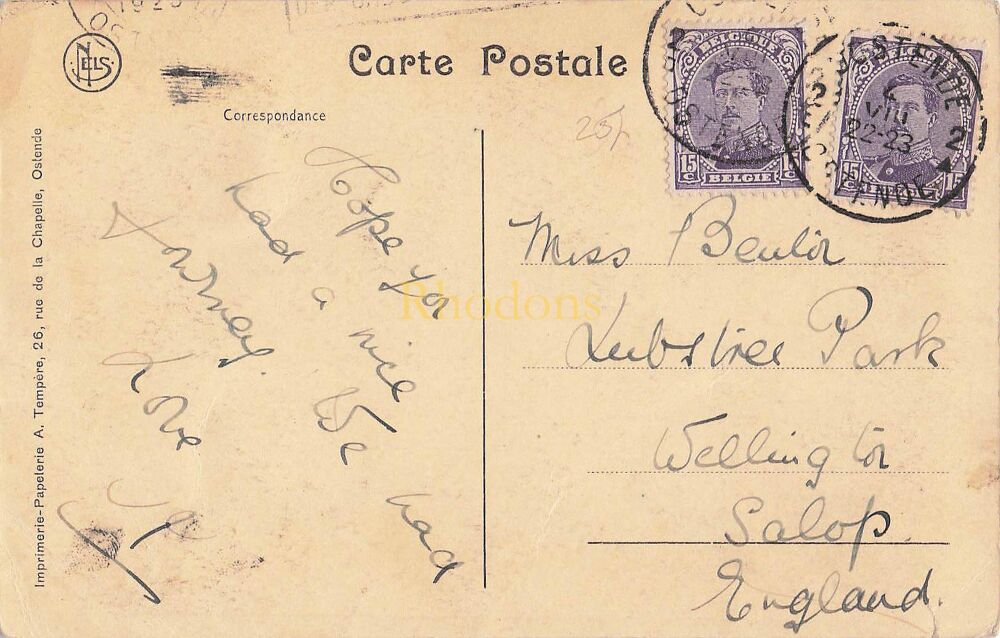 NELS
Carte Postale
Correspondance
Imprimerie-Papeterie A. Tempère, 26, rue de la Chapelle, Ostende
25/-
BELGIQUE
15 C 15 C
BELGIE
15 15
OSTENDE 2
2
VIII
22-23
OSTENDE
Hope you
had a nice
Journey. We had
Love
Miss
Lubstree Park
Wellington
Salop.
England.
Rhodons